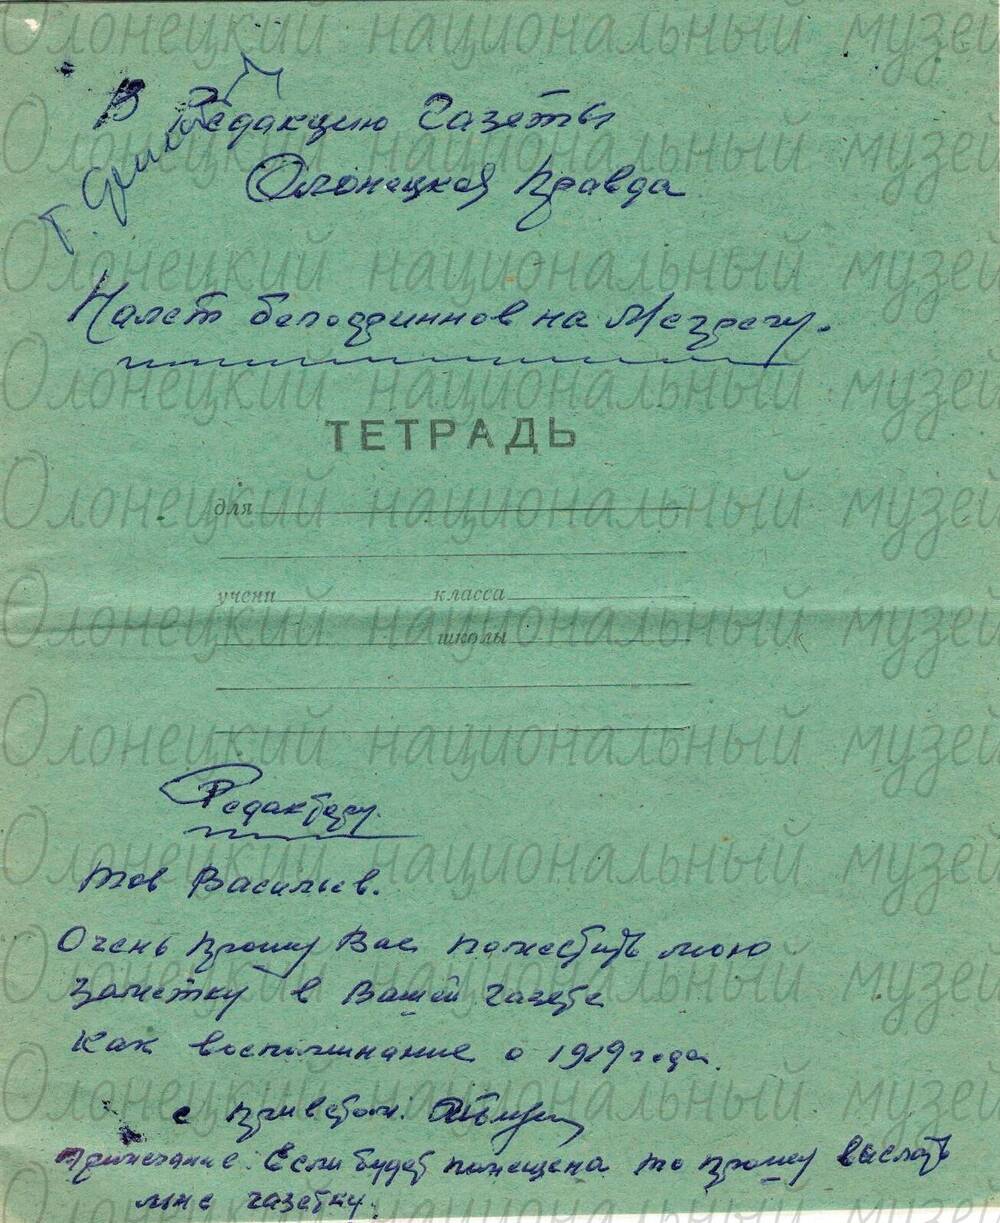 В Редакцию Газеты
Олонецкая Правда
Налет белофиннов на Мегрегу.
ТЕТРАДЬ
для
учени класса
школы
Редактору.
тов Васильев.
Очень прошу Вас поместить мою
заметку в Вашей газете
Как воспоминание о 1919 года.
с приветом:
Примечание: Если будет помещена то прошу выслать
мне газетку.
Олонецкий национальный музей